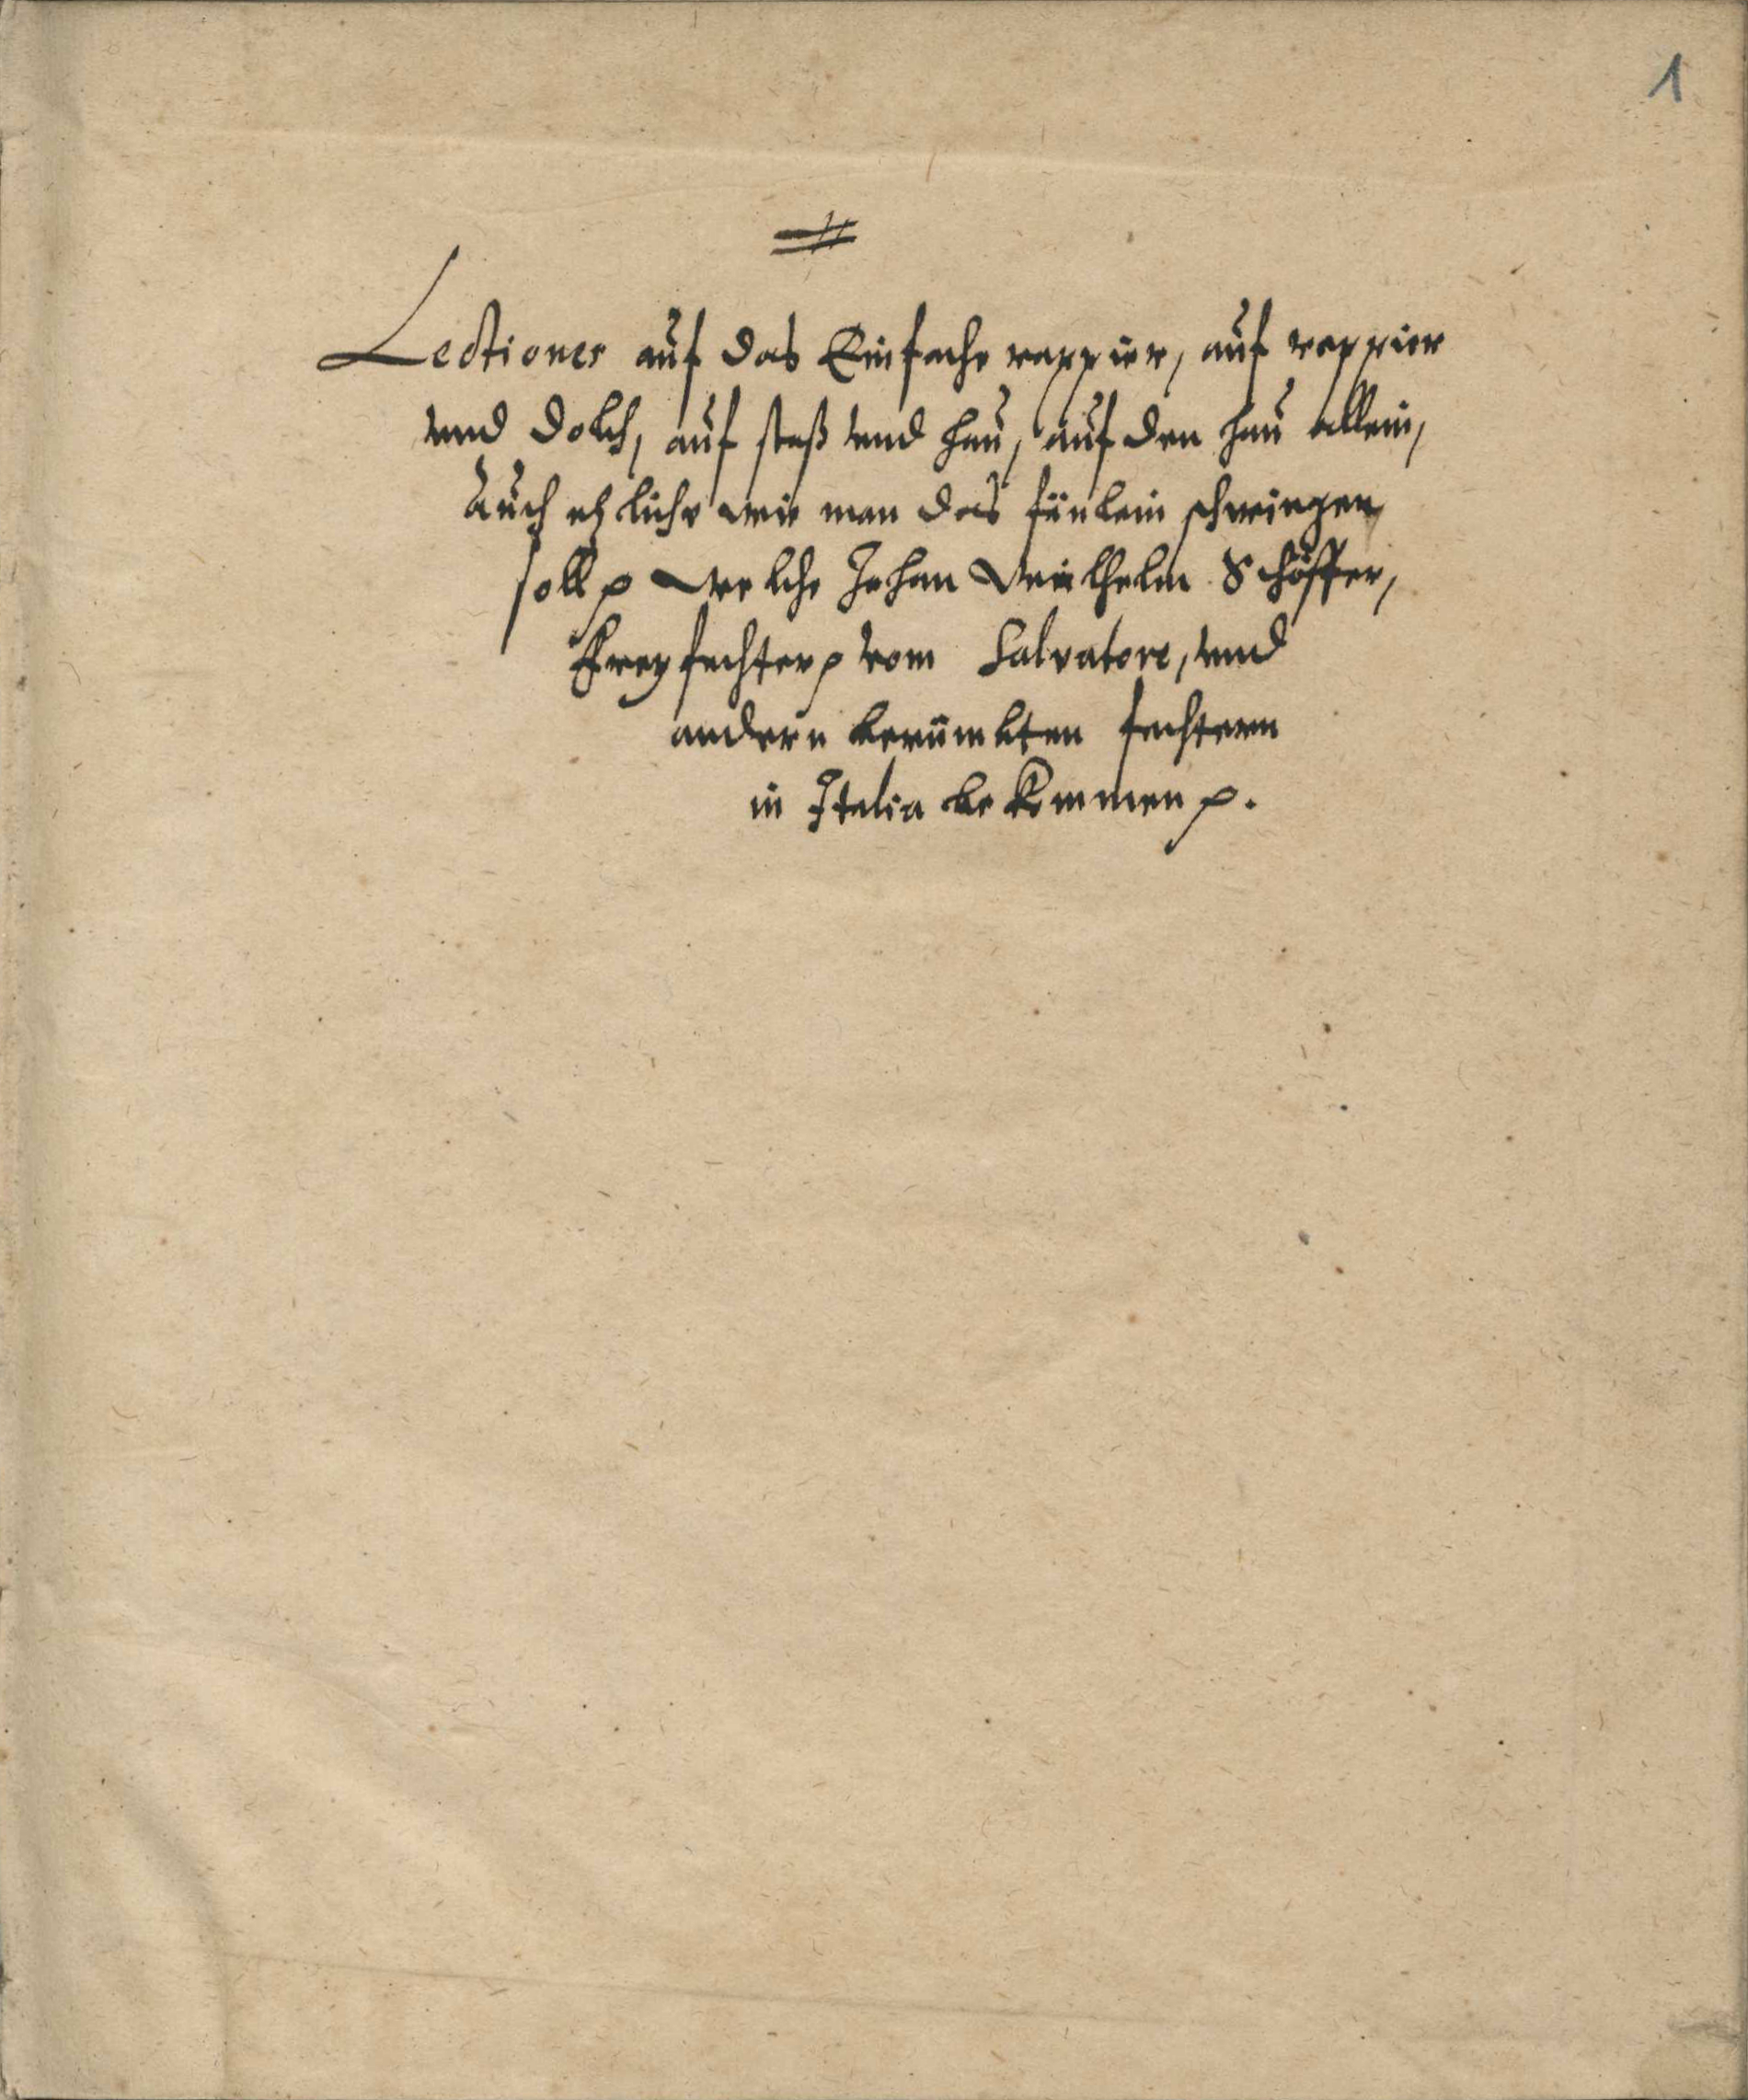 1
Lectiones auf das Einfache rappier, auf rappier
vnd Dolch, auf stoß vnd hau, auf den hau allein,
Auch etzliche wie man das fänlein schwingen
soll p welche Johan Wilhelm Schöffer,
Freyfechter p vom Salvatore, vnd
andern berümbten fechtern
in Italia bekommen p.